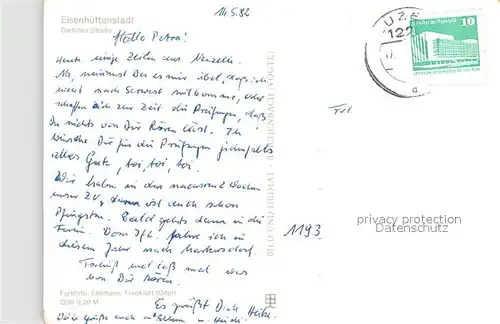 14.5.82
Eisenhüttenstadt
Diehloer Straße
Hallo Petra!
Heute einige Zeilen aus Neuzelle.
Na, nimmst Du es mir übel, daß ich
nicht nach mitkomme, oder
schaffen Dich zur Zeit die Prüfungen, daß
Du nichts von Dir hören läßt. Ich
wünsche Dir für die Prüfungen jedenfalls
alles Gute, toi, toi, toi.
Wir haben in den nächsten Wochen
unser ZV, dann ist auch schon
Pfingsten. Bald gehts dann in die
Ferien. Vom fahre ich in
diesem Jahr nach Markersdorf.
Tschüß und laß mal was
von Dir hören.
Es grüßt Dich Heike.
grüße auch Eltern u.
Farbfoto: Lehmann, Frankfurt (Oder)
DDR 0,20 M
BILD UND HEIMAT REICHENBACH (VOGTL)
122
10
1193
privacy protection
Datenschutz